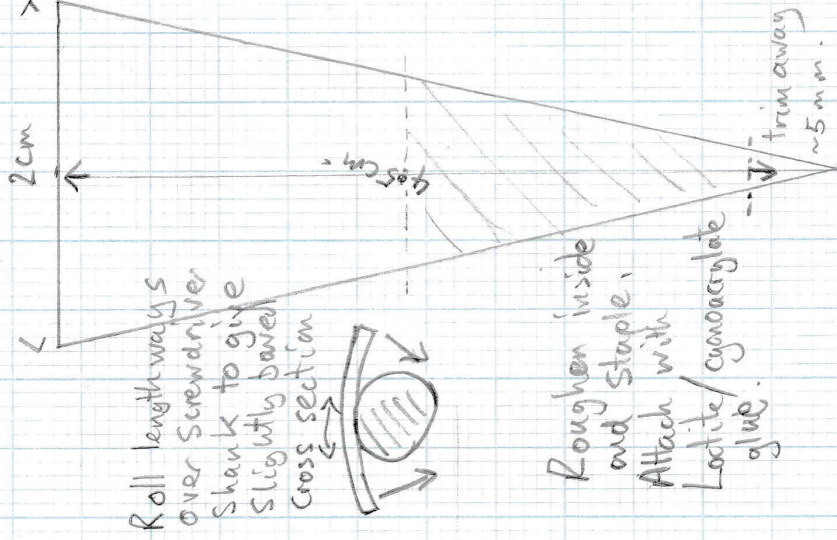 2cm
4.5 cm.
Roll lengthways
over screwdriver
shank to give
slightly bowed
cross section
Roughen inside
and staple.
Attach with
Loctite/cyanoacrylate
glue.
trim away
~5mm.